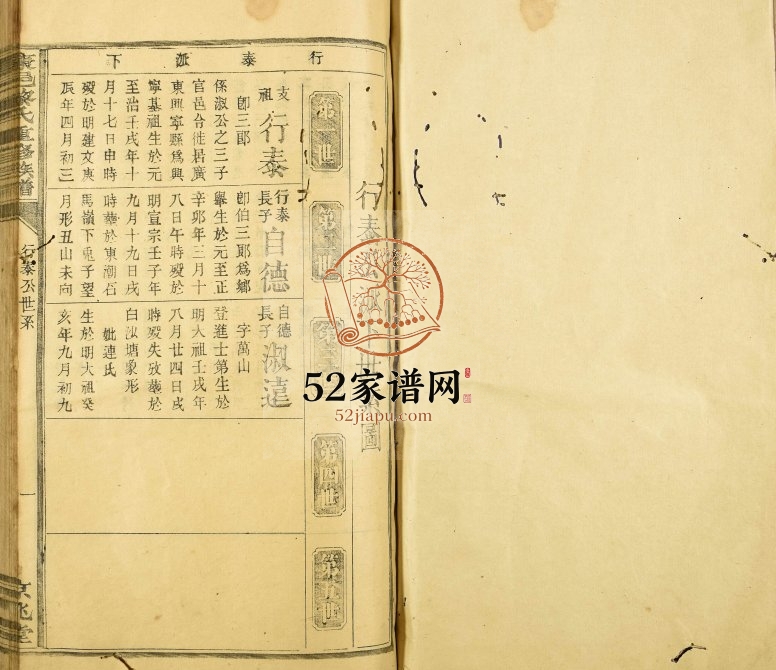 行泰派下
行泰公世系圖
第一世
第二世
第三世
第四世
第五世
支祖行泰
即三郎
係淑公之三子
官邑令徙居廣
東興寧縣爲興
寧基祖生於元
至治壬戌年十
月十七日申時
歿於明建文庚
辰年四月初三
行泰長子自德
即伯三郎爲鄉
舉生於元至正
辛卯年三月十
八日午時歿於
明宣宗壬子年
九月十九日戌
時葬於東潮石
馬嶺下兎子望
月形丑山未向
自德長子淑遠
字萬山
登進士第生於
明大祖壬戌年
八月廿四日戌
時歿失攷葬於
白沙塘象形
妣連氏
生於明大祖癸
亥年九月初九
氏重修族譜
行泰公世系
一
京兆堂
52家谱网
52jiapu.com